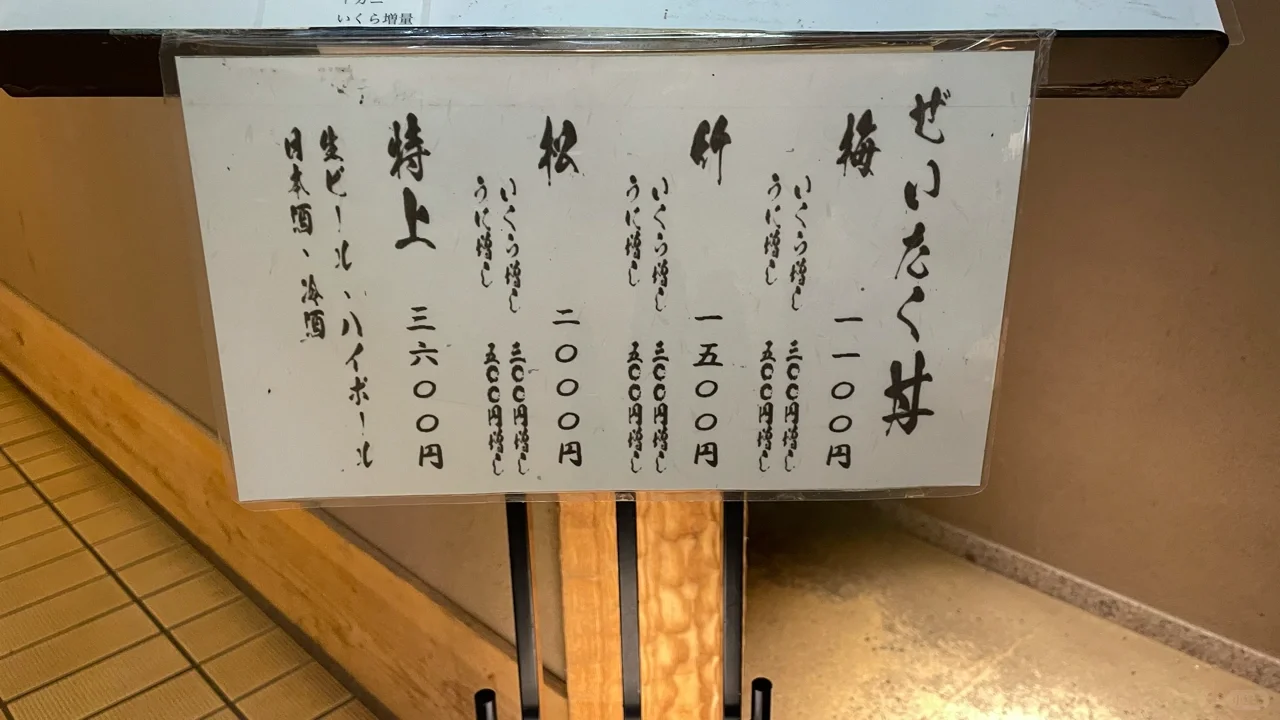 いくら増量
ぜいたく丼
梅 一一〇〇円
いくら増し 三〇〇円増し
うに増し 五〇〇円増し
竹 一五〇〇円
いくら増し 三〇〇円増し
うに増し 五〇〇円増し
松 二〇〇〇円
いくら増し 三〇〇円増し
うに増し 五〇〇円増し
特上 三六〇〇円
生ビール、ハイボール
日本酒、冷酒